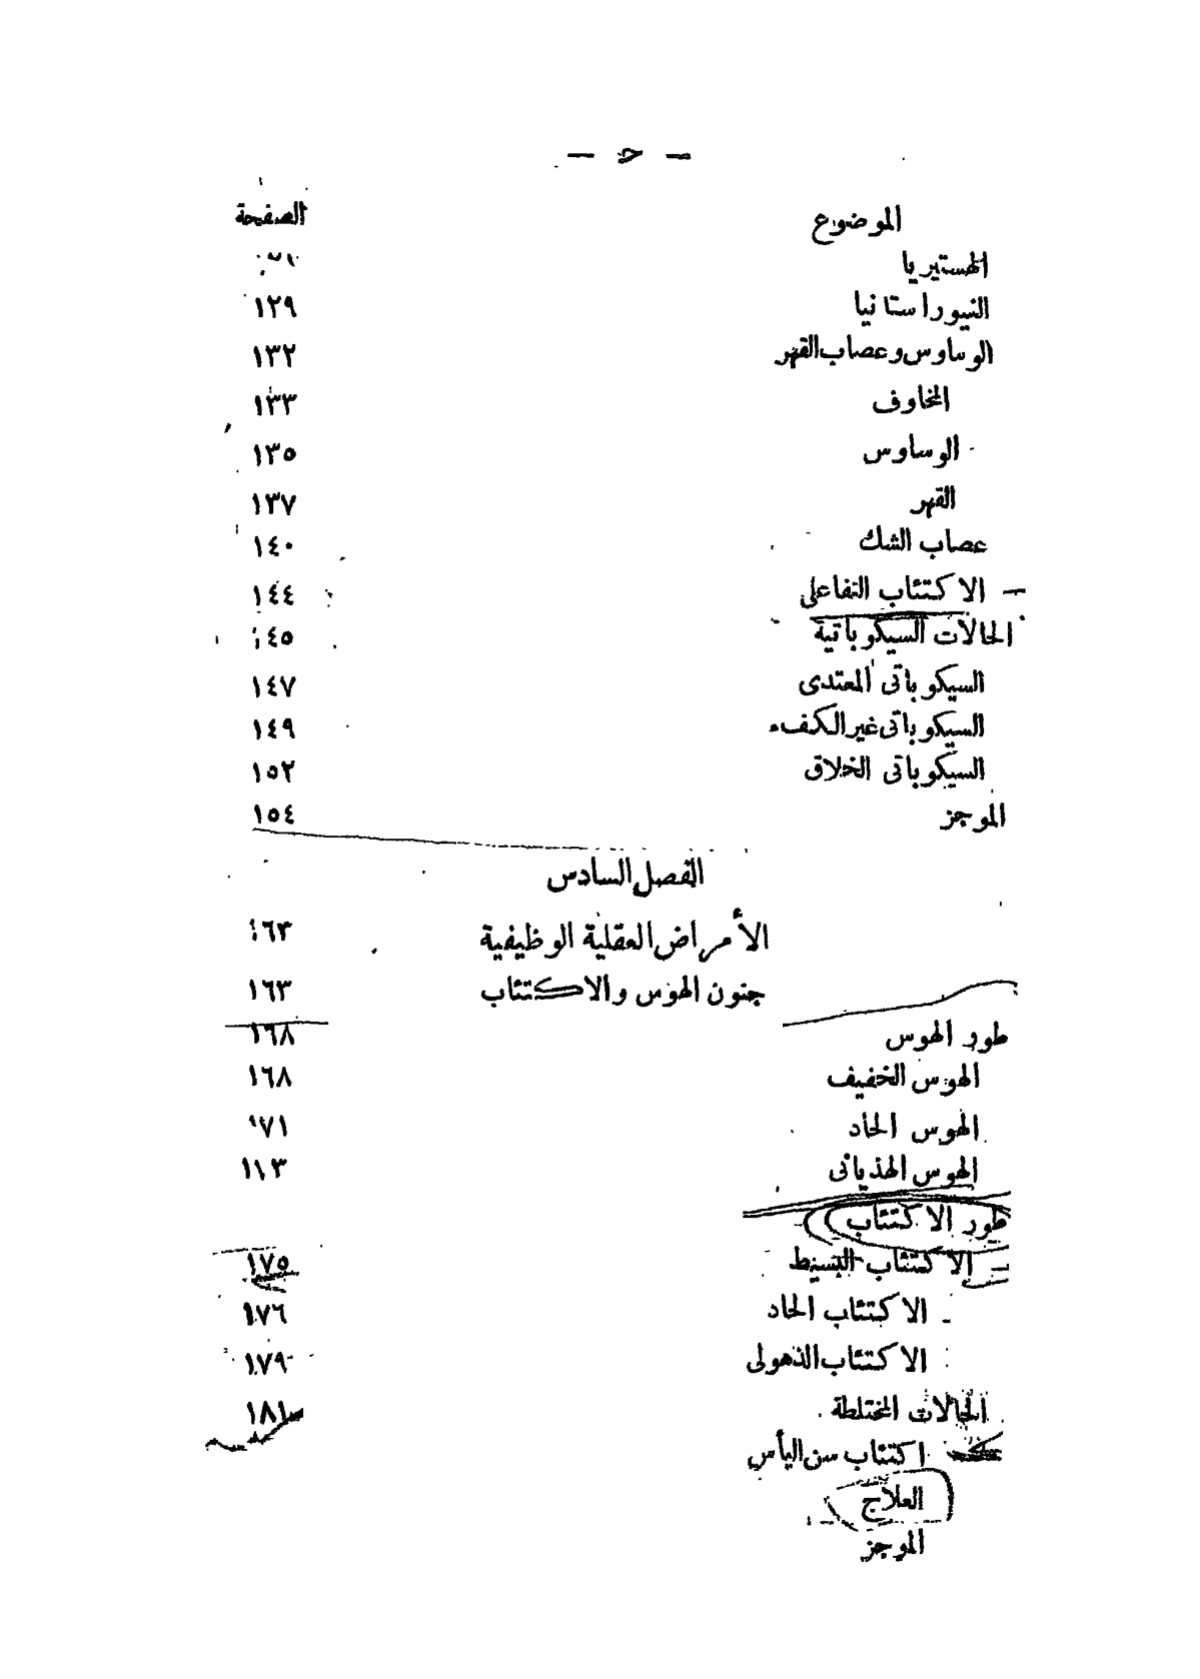 الموضوع الصفيحة
الهستيريا
النيوراستانيا ١٢٩
الوساوس وعصاب القهر ١٣٢
المخاوف ١٣٣
الوساوس ١٣٥
القهر ١٣٧
عصاب الشك ١٤٠
الاكتئاب التفاعلى ١٤٤
الحالات السيكوباتية ١٤٥
السيكوباتى المعتدى ١٤٧
السيكوباتى غير الكفء ١٤٩
السيكوباتى الخلاق ١٥٢
الموجز ١٥٤
الفصل السادس
الأمراض العقلية الوظيفية ١٦٣
جنون الهوس والاكتئاب ١٦٣
طور الهوس ١٦٨
الهوس الخفيف ١٦٨
الهوس الحاد ١٧١
الهوس الهذيانى
طور الاكتئاب
الاكتئاب البسيط ١٧٥
الاكتئاب الحاد ١٧٦
الاكتئاب الذهولى ١٧٩
الحالات المختلطة ١٨١
اكتئاب سن اليأس
العلاج
الموجز